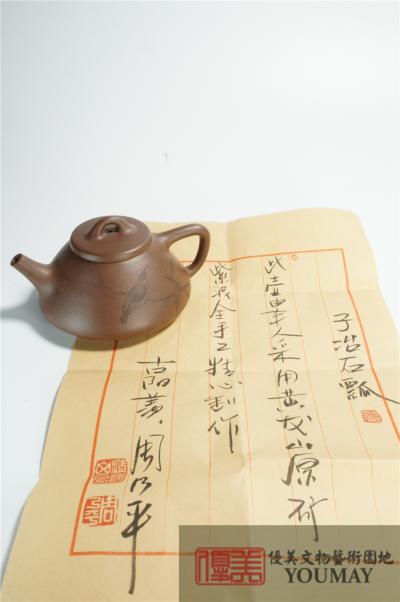 子冶石瓢
此壶由本人采用黄龙山原矿
紫泥全手工精心制作
周
優美
優美文物藝術園地
YOUMAY